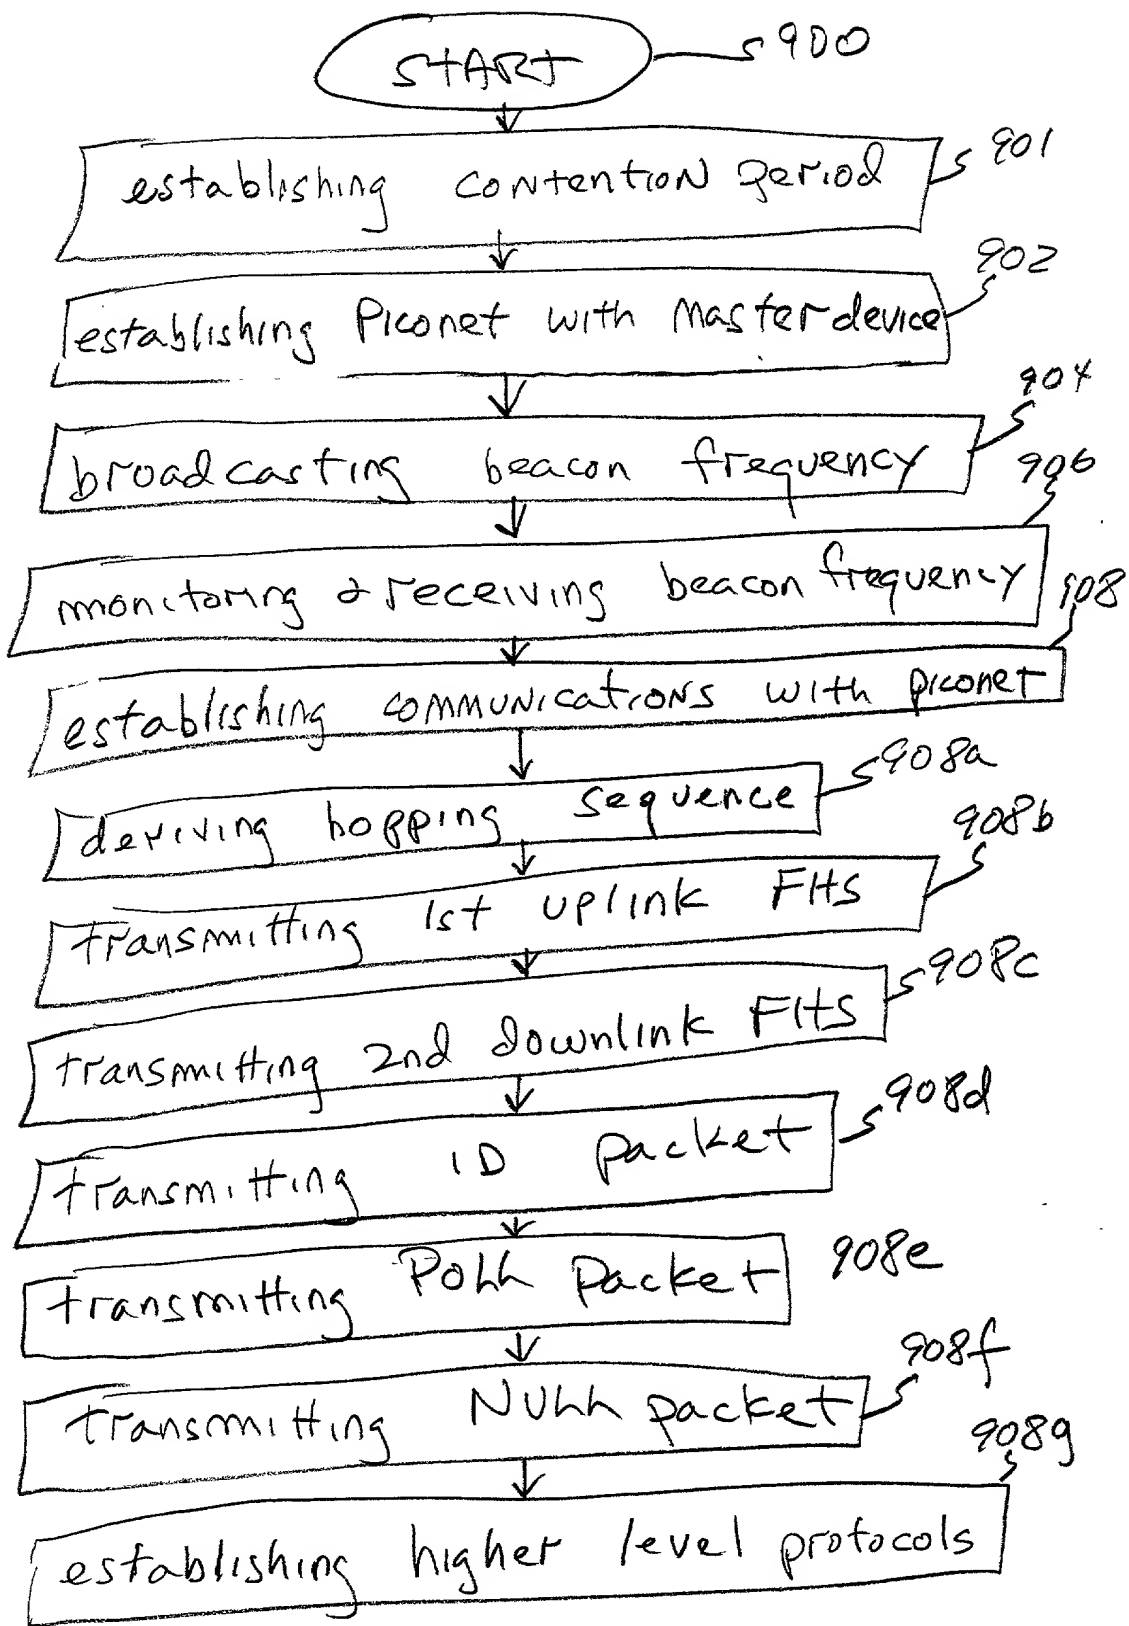 START 900
establishing contention period 901
establishing Piconet with Master device 902
broadcasting beacon frequency 904
monitoring & receiving beacon frequency 906
establishing communications with piconet 908
deriving hopping sequence 908a
transmitting 1st uplink FHS 908b
transmitting 2nd downlink FHS 908c
transmitting ID packet 908d
transmitting POLL Packet 908e
transmitting NULL packet 908f
establishing higher level protocols 908g